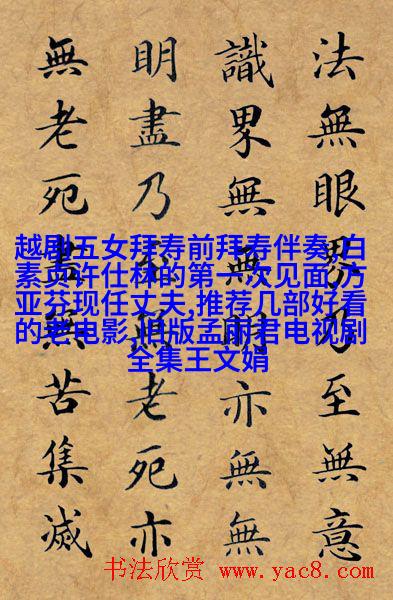 法無眼界乃至無意
識界無無明亦無無
明盡乃至無老死亦
無老死盡無苦集滅
越剧五女拜寿前拜寿伴奏,白
素贞许仕林的第一次见面,方
亚芬现任丈夫,推荐几部好看
的老电影,旧版孟丽君电视剧
全集王文娟
书法欣赏 www.yac8.com